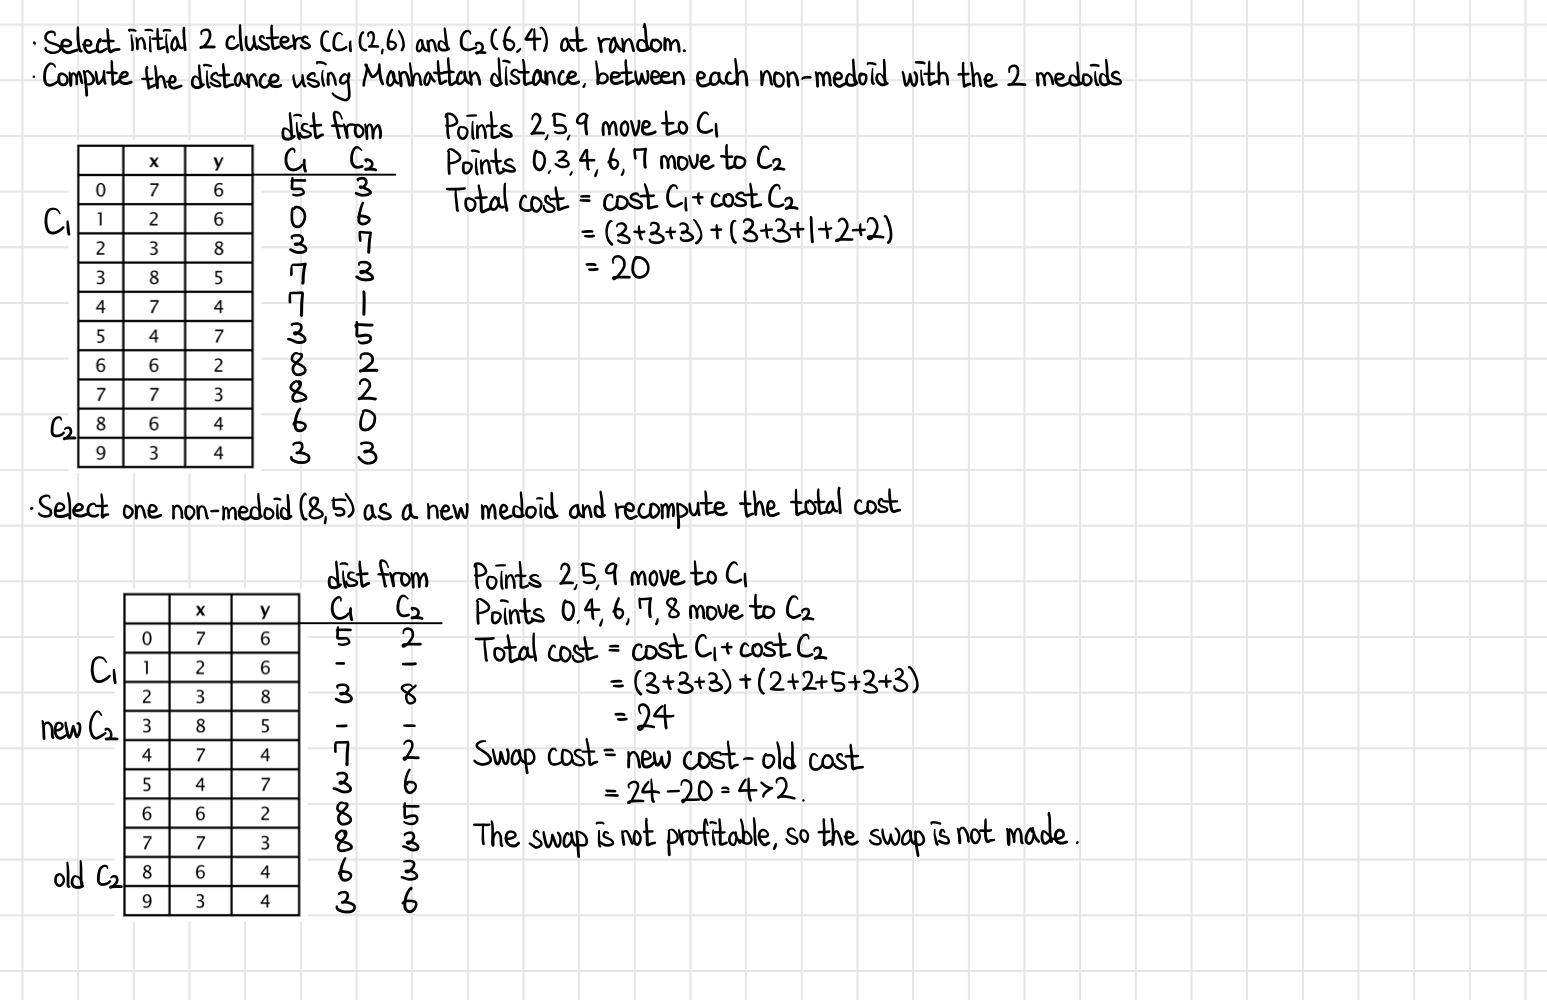 · Select initial 2 clusters CC₁(2,6) and C₂(6,4) at random.
· Compute the distance using Manhattan distance, between each non-medoid with the 2 medoids
dist from
x y C₁ C₂
0 7 6 5 3
C₁ 1 2 6 0 6
2 3 8 3 7
3 8 5 7 3
4 7 4 7 1
5 4 7 3 5
6 6 2 8 2
7 7 3 8 2
C₂ 8 6 4 6 0
9 3 4 3 3
Points 2,5,9 move to C₁
Points 0,3,4,6,7 move to C₂
Total cost = cost C₁+cost C₂
= (3+3+3)+(3+3+1+2+2)
= 20
· Select one non-medoid (8,5) as a new medoid and recompute the total cost
dist from
x y C₁ C₂
0 7 6 5 2
C₁ 1 2 6 - -
2 3 8 3 8
new C₂ 3 8 5 - -
4 7 4 7 2
5 4 7 3 6
6 6 2 8 5
7 7 3 8 3
old C₂ 8 6 4 6 3
9 3 4 3 6
Points 2,5,9 move to C₁
Points 0,4,6,7,8 move to C₂
Total cost = cost C₁+cost C₂
= (3+3+3)+(2+2+5+3+3)
= 24
Swap cost = new cost - old cost
= 24-20=4>2.
The swap is not profitable, so the swap is not made.